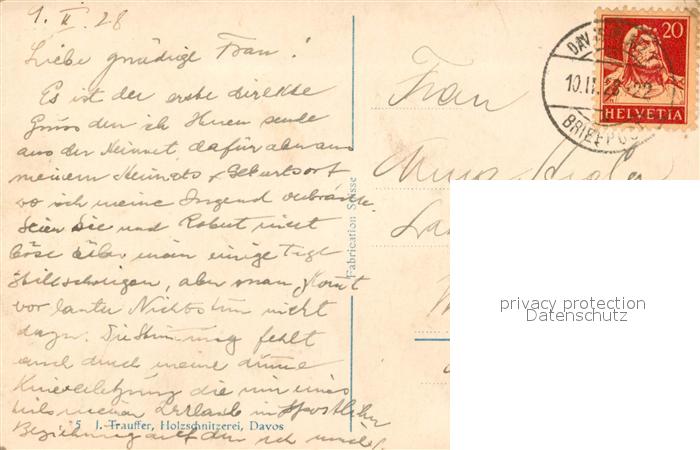 9. II. 28
Liebe gnädige Frau!
Es ist der erste direkte
Gruss den ich Ihnen sende
aus der Heimat, dafür aber aus
meinem Heimats & Geburtsort
wo ich meine Jugend verbrachte.
Seien Sie und Robert nicht
böse über mein einige Tage
Stillschweigen, aber man kommt
vor lauter Nichtstun nicht
dazu. Die Stimmung fehlt
auch durch meine dumme
Knieverletzung die mir eines
teils meinen Urlaub in sportlicher
Beziehung auf den ich mich
5 J. Trauffer, Holzschnitzerei, Davos
Fabrication Suisse
Frau
Anna
DAVOS
10.II.28
BRIEFPOST
20
HELVETIA
privacy protection
Datenschutz